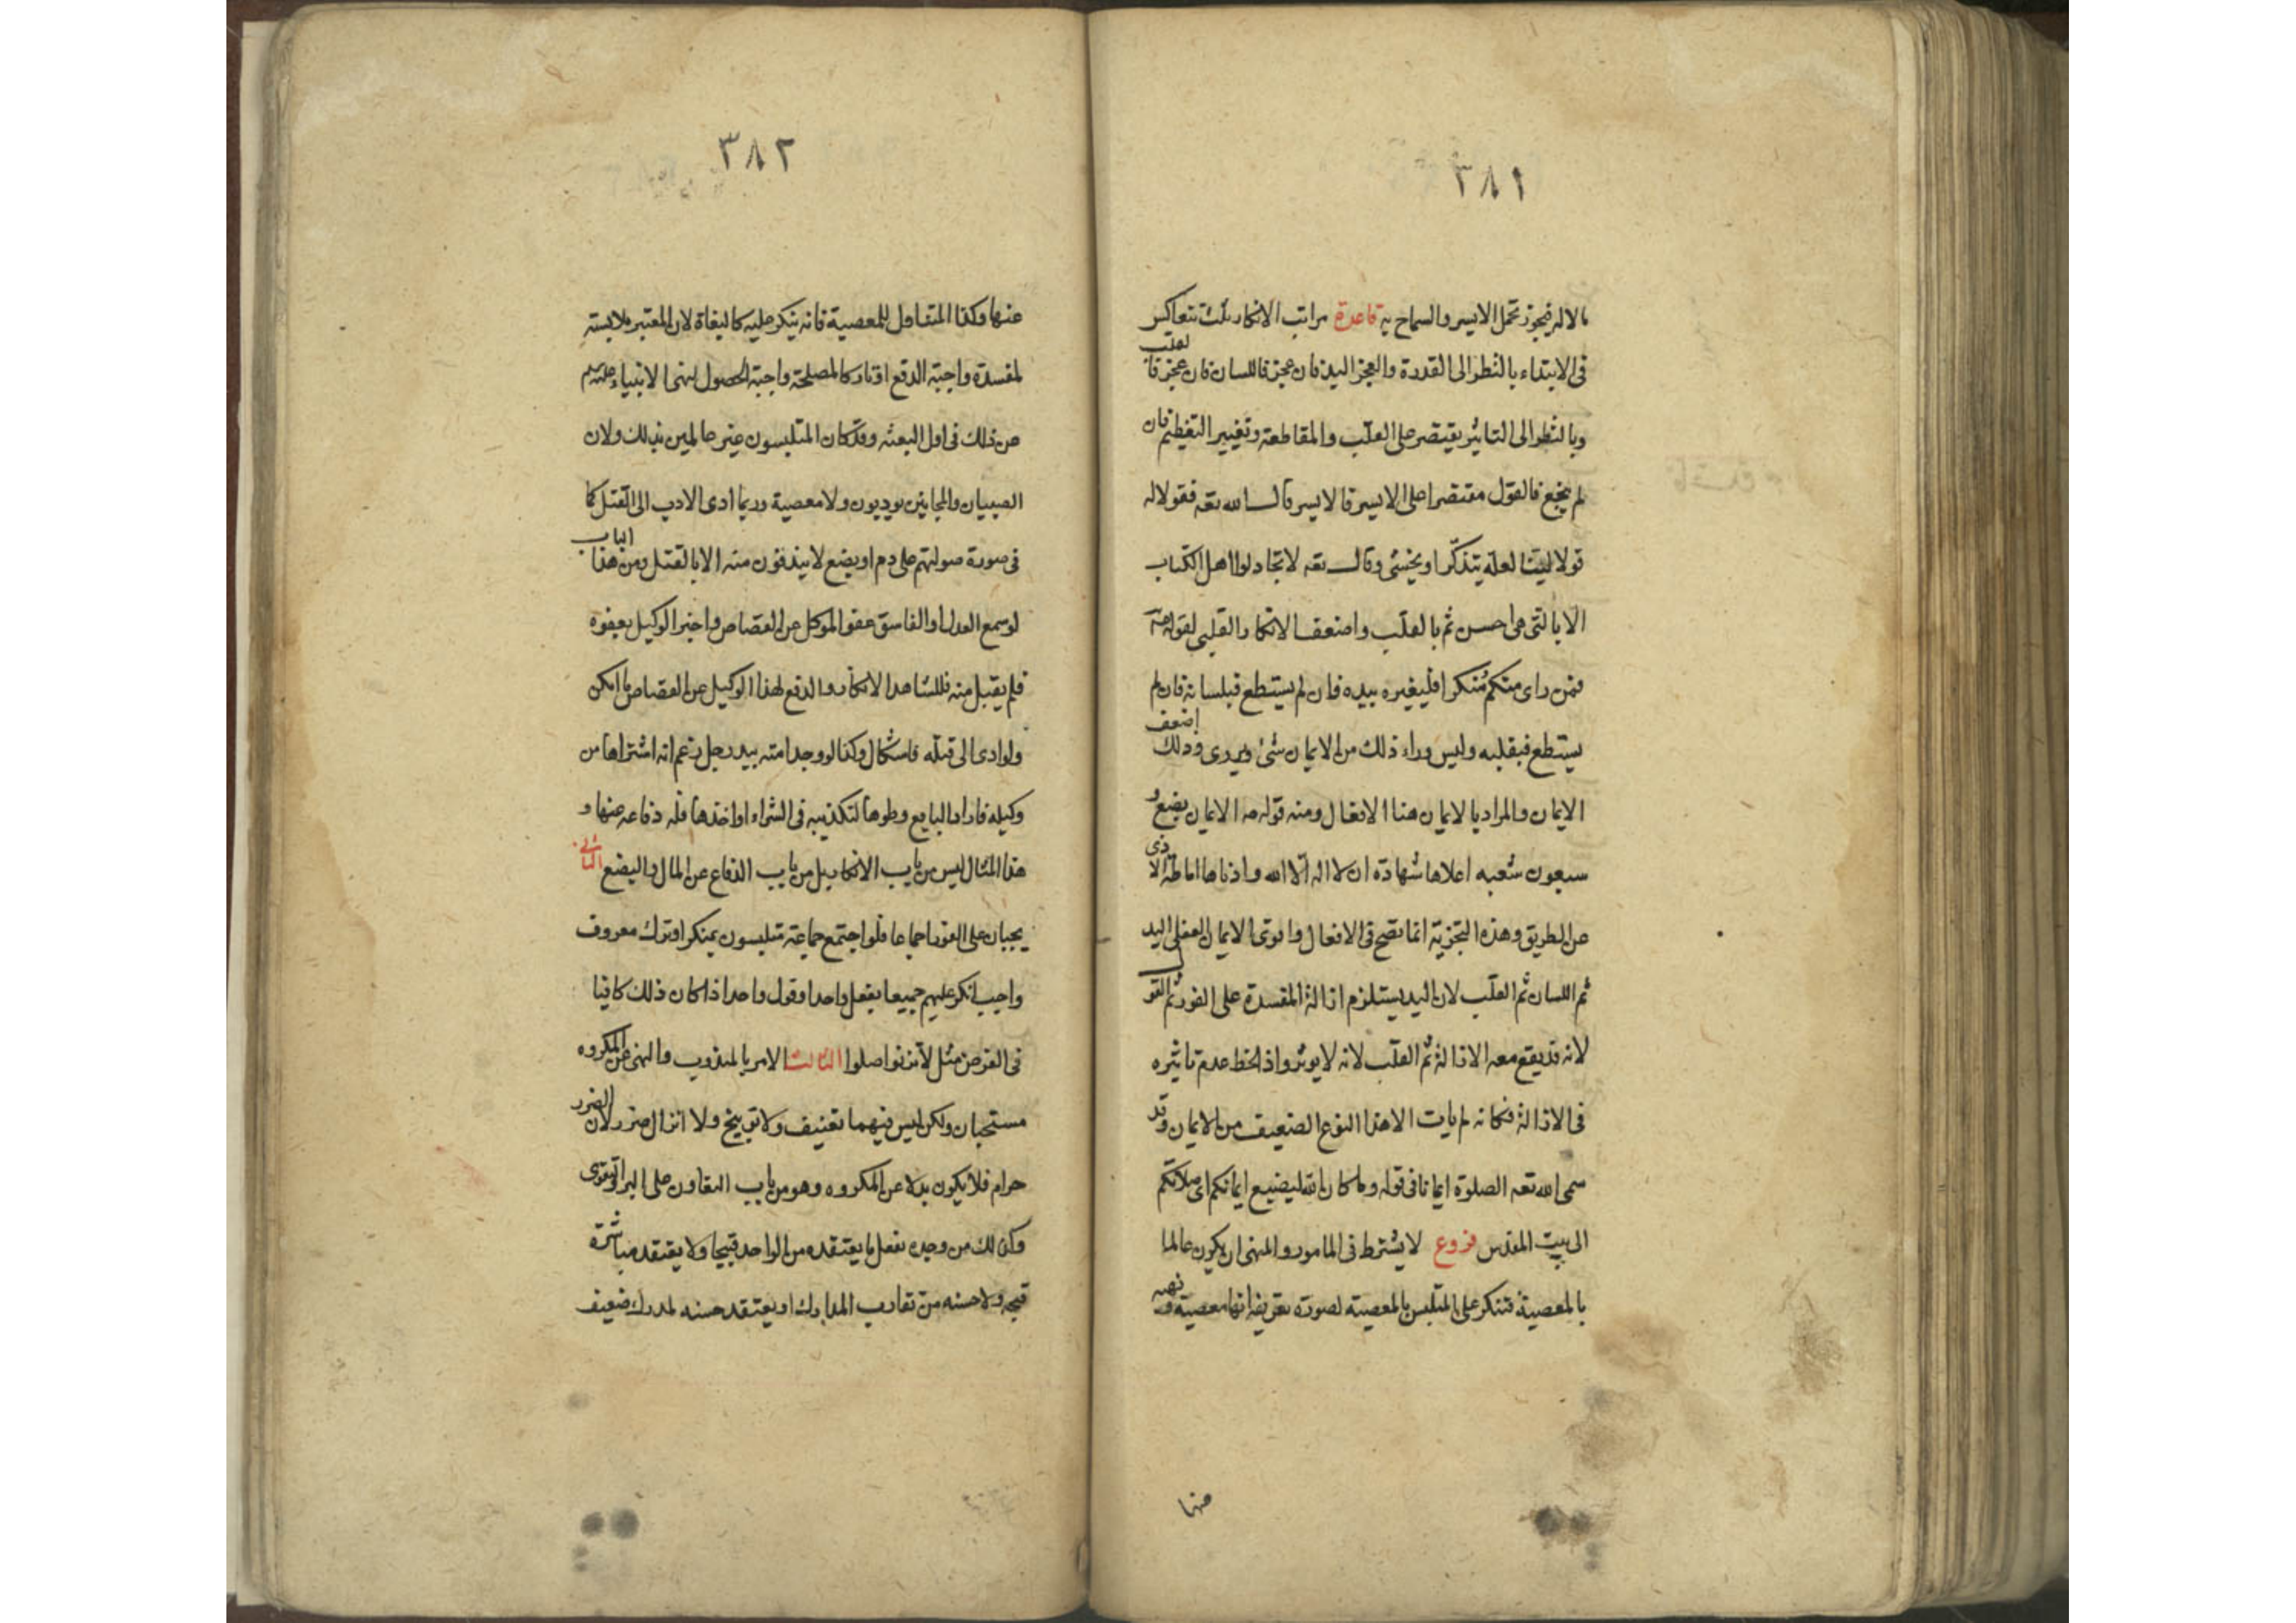 ٣٨١
بالالم فيجوز تحمل الايسر والسماح به قاعدة مراتب الانكار ثلث تتعاكس
فى الابتداء بالنظر الى القدرة والعجز اليد فان عجز فاللسان فان عجز فالقلب
وبالنظر الى التاثير يقتصر على القلب والمقاطعة وتغيير التعظيم فان
لم ينجع فالقول مقتصرا على الايسر فالايسر قال الله تعه فقولا له
قولا لينا لعله يتذكّر او يخشى وقال تعه لا تجادلوا اهل الكتاب
الا بالتى هى احسن ثم بالقلب واضعف الانكار القلبى لقوله صه
فمن راى منكم مُنكرا فليغيره بيده فان لم يستطع فبلسانه فان لم
يستطع فبقلبه وليس وراء ذلك من الايمان شئ ويروى وذلك اضعف
الايمان والمراد بالايمان هنا الافعال ومنه قوله صه الايمان بضع و
سبعون شعبه اعلاها شهادة ان لا اله الّا الله وادناها اماطة الاذى
عن الطريق وهذه التجزية انما تصح فى الافعال واقوى الايمان الفعلى اليد
ثم اللسان ثم القلب لان اليد يستلزم ازالة المفسدة على الفور ثم القول
لانه قد يقع معه الازالة ثم القلب لانه لا يوثر واذا لحظ عدم تاثيره
فى الازالة فكانه لم يات الا هذا النوع الضعيف من الايمان وقد
سمى الله تعه الصلوة ايمانا فى قوله وما كان الله ليضيع ايمانكم اى صلاتكم
الى بيت المقدس فروع لا يشترط فى المامور والمنهى ان يكون عالما
بالمعصية فتنكر على المتلبس بالمعصيه لصورة تعريفه انها معصية ونهيه
منها
٣٨٢
عنها وكذا المتناول للمعصية فانه ينكر عليه كالبغاة لان المعتبر ملابسته
لمفسدة واجبة الدفع او تارك المصلحة واجبة الحصول لنهى الانبياء عليهم
عن ذلك فى اول البعثه وقد كان المتلبسون غير عالمين بذلك ولان
الصبيان والمجانين يودبون ولا معصية وربما ادى الادب الى القتل كما
فى صورة صولتهم على دم او بضع لا يندفعون منه الا بالقتل ومن هذا الباب
لو سمع العدل او الفاسق عفو الموكل عن القصاص واخبر الوكيل بعفوه
فلم يقبل منه فللشاهد الانكار والدفع لهذا الوكيل عن القصاص ما امكن
ولو ادى الى قتله فاشكال وكذا لو وجد امته بيد رجل زعم انه اشتراها من
وكيله فاراد البايع وطوها لتكذيبه فى الشراء او اخذها فله دفاعه عنها و
هذا المثال ليس من باب الانكار بل من باب الدفاع عن المال والبضع الثانى
يجبان على الفور اجماعا فلو اجتمع جماعة متلبسون بمنكر او ترك معروف
واجب انكر عليهم جميعا بفعل واحد او قول واحد اذا كان ذلك كافيا
فى الغرض مثل لا تزنوا صلوا الثالث الامر بالمندوب والنهى عن المكروه
مستحبان ولكن ليس فيهما تعنيف ولا توبيخ ولا انزال ضرر لان الضرر
حرام فلا يكون بدلا عن المكروه وهو من باب التعاون على البر والتقوى
وكذلك من وجده يفعل ما يعتقده من الواحد قبيحا ولا يعتقد مباشره
قبحه ولا حسنه من تقارب المدارك او يعتقد حسنه لمدرك ضعيف